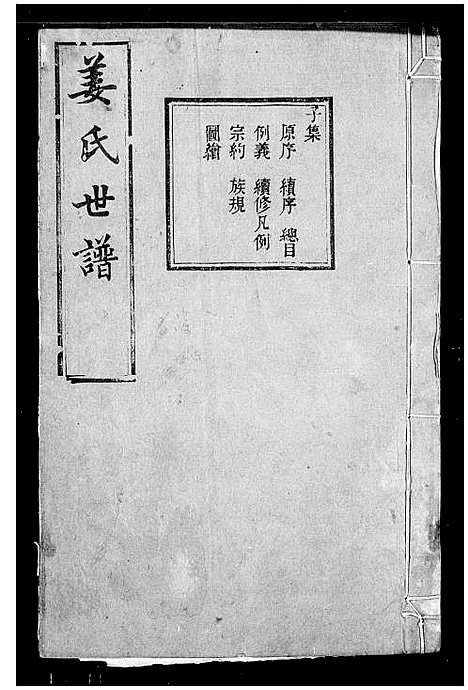 姜氏世譜
子集
原序 續序 總目
例義 續修凡例
宗約 族規
圖繪